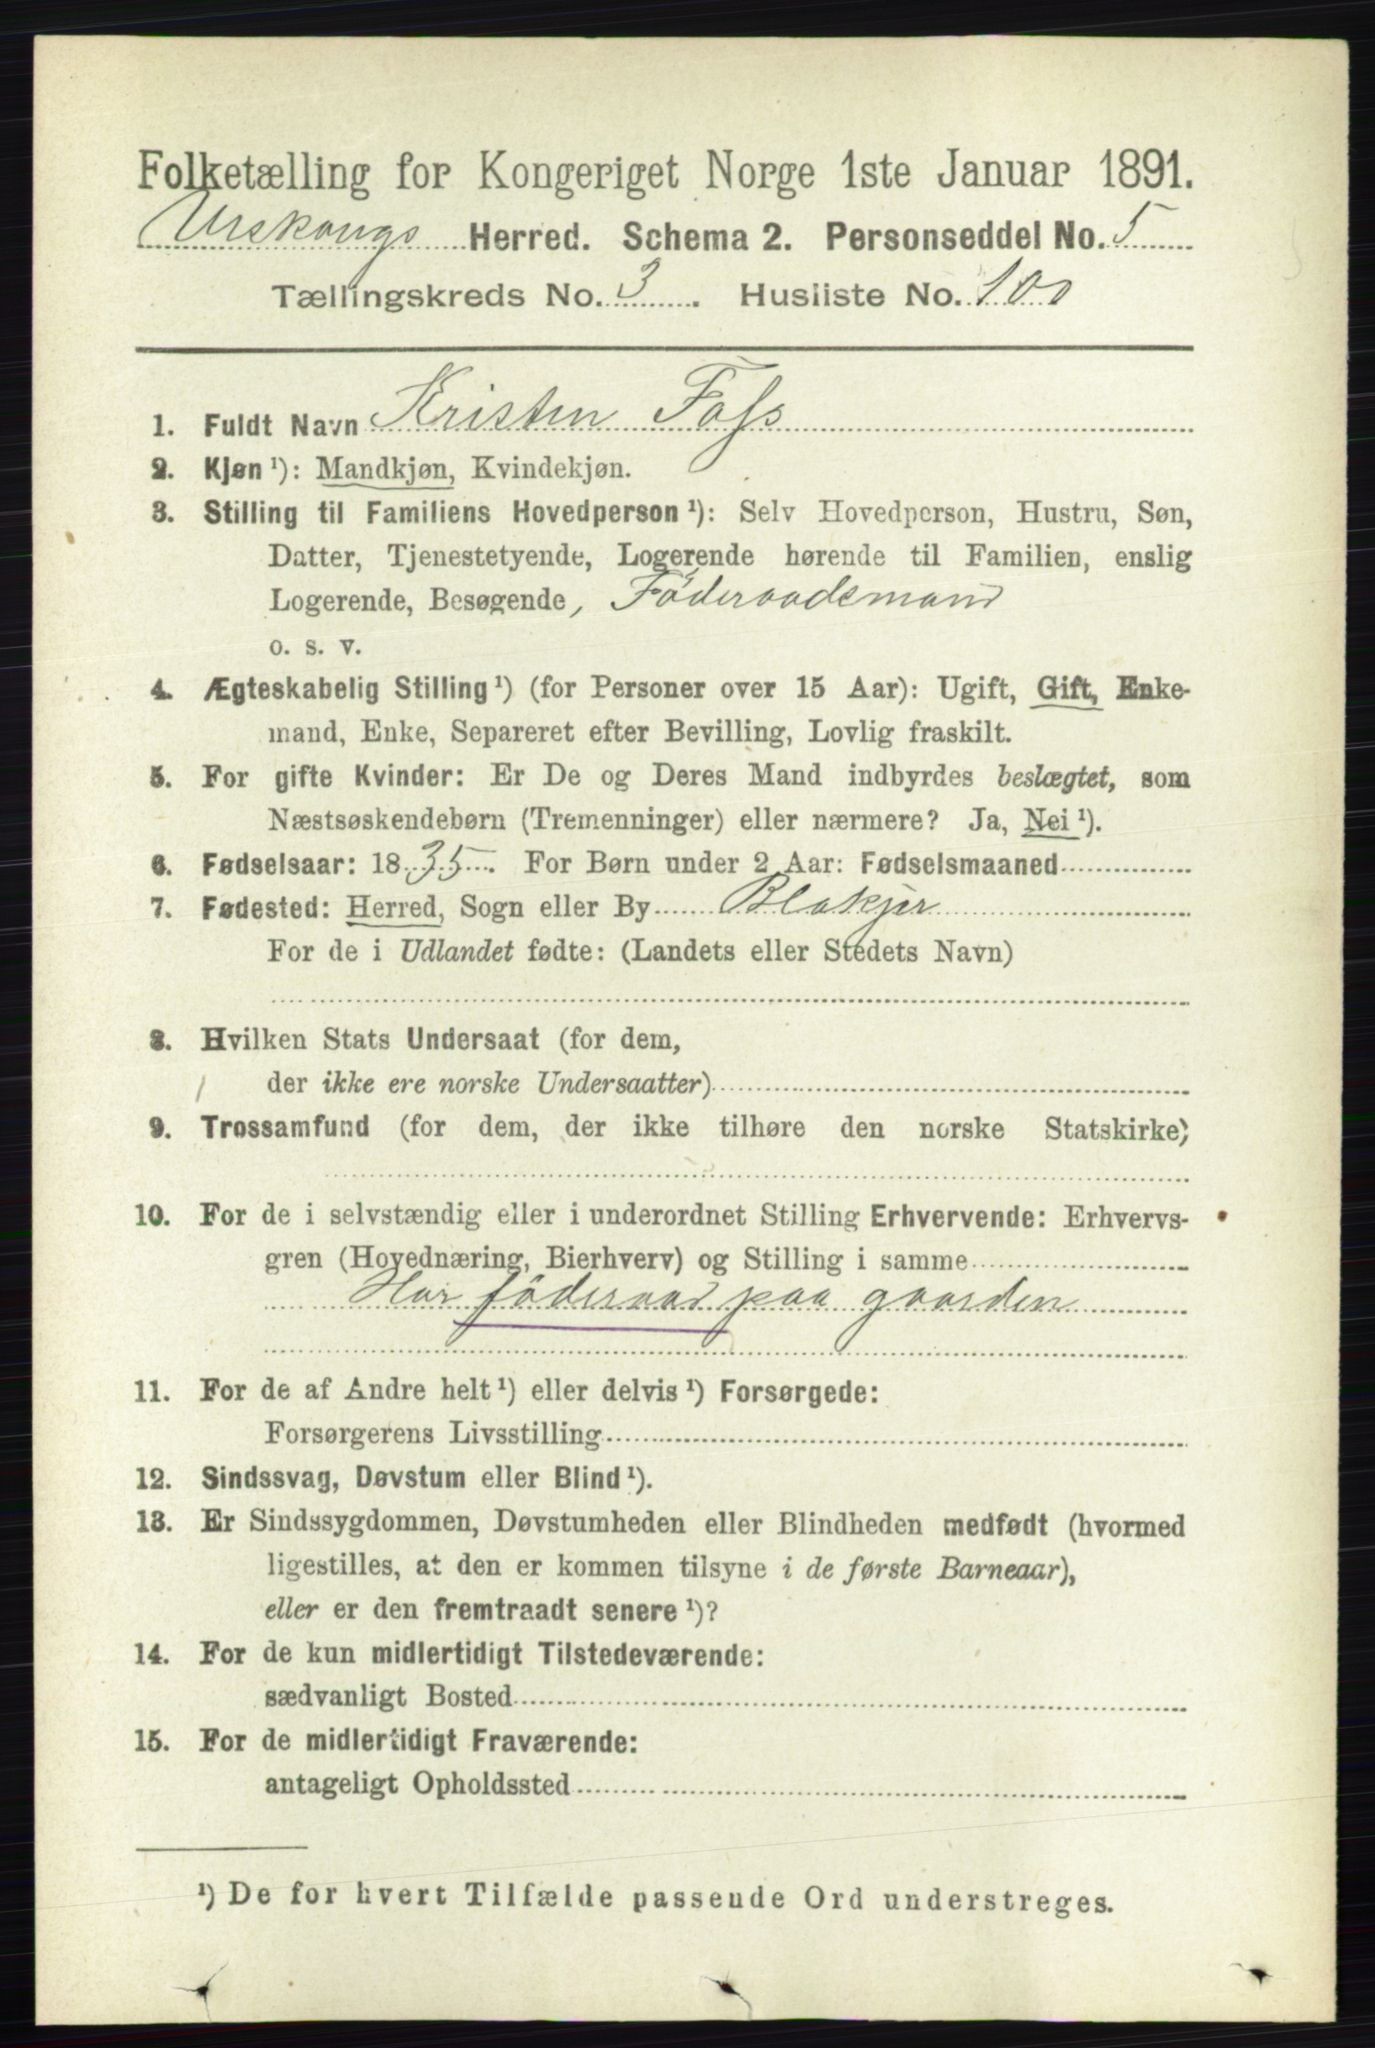 Folketælling for Kongeriget Norge 1ste Januar 1891.
Urskougs Herred. Schema 2. Personseddel No. 5
Tællingskreds No. 3. Husliste No. 100
1. Fuldt Navn Kristen Foss
2. Kjøn ¹): Mandkjøn, Kvindekjøn.
3. Stilling til Familiens Hovedperson ¹): Selv Hovedperson, Hustru, Søn,
Datter, Tjenestetyende, Logerende hørende til Familien, enslig
Logerende, Besøgende, Föderaadsmand
o. s. v.
4. Ægteskabelig Stilling ¹) (for Personer over 15 Aar): Ugift, Gift, Enke-
mand, Enke, Separeret efter Bevilling, Lovlig fraskilt.
5. For gifte Kvinder: Er De og Deres Mand indbyrdes beslægtet, som
Næstsøskendebørn (Tremenninger) eller nærmere? Ja, Nei ¹).
6. Fødselsaar: 1835. For Børn under 2 Aar: Fødselsmaaned
7. Fødested: Herred, Sogn eller By Blakjer
For de i Udlandet fødte: (Landets eller Stedets Navn)
8. Hvilken Stats Undersaat (for dem,
der ikke ere norske Undersaatter)
9. Trossamfund (for dem, der ikke tilhøre den norske Statskirke)
10. For de i selvstændig eller i underordnet Stilling Erhvervende: Erhvervs-
gren (Hovednæring, Bierhverv) og Stilling i samme
Har föderaad paa gaarden
11. For de af Andre helt ¹) eller delvis ¹) Forsørgede:
Forsørgerens Livsstilling
12. Sindssvag, Døvstum eller Blind ¹).
13. Er Sindssygdommen, Døvstumheden eller Blindheden medfødt (hvormed
ligestilles, at den er kommen tilsyne i de første Barneaar),
eller er den fremtraadt senere ¹)?
14. For de kun midlertidigt Tilstedeværende:
sædvanligt Bosted
15. For de midlertidigt Fraværende:
antageligt Opholdssted
¹) De for hvert Tilfælde passende Ord understreges.